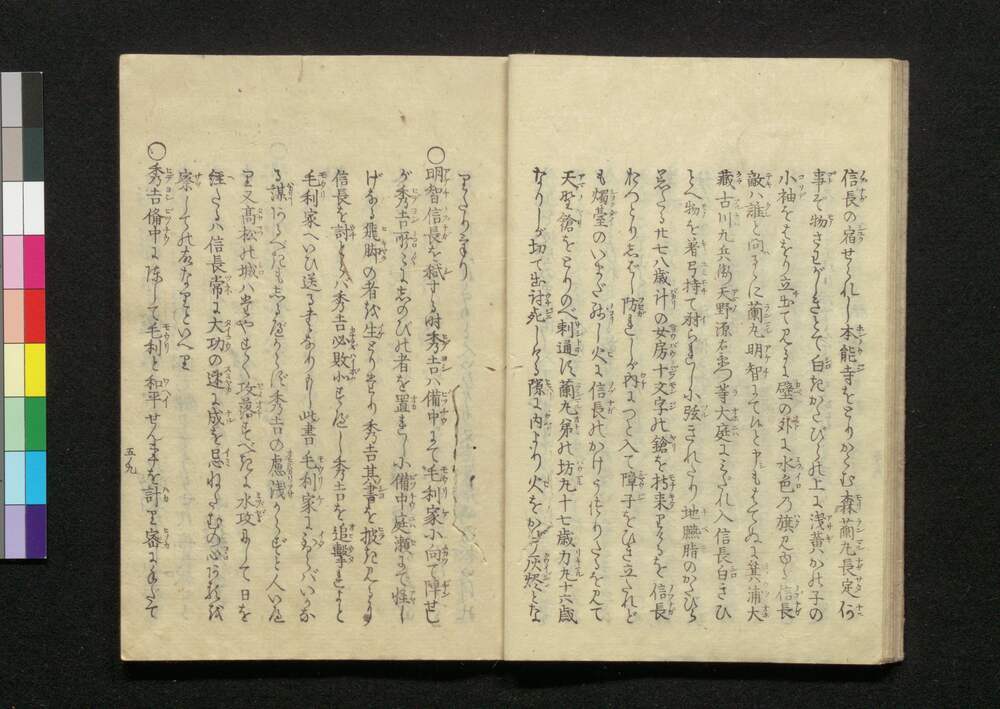 信長の宿せられし本能寺をとりかこむ森蘭丸長定何
事ぞ物さわがしきとて白きかたびらの上に浅黄かの子の
小袖をはをり立出て見るに壁の外に水色の旗見ゆる信長
敵ハ誰と問るゝに蘭丸明智にてひと申もはてぬに箕浦大
蔵古川九兵衛天野源右衛門等大庭にみだれ入信長白きひ
とへ物を着弓持て射られしに弦きれたり地臙脂のかたびら
着たる廿七八歳計の女房十文字の鎗を持来りけるを信長
おつとりしばし防れしが内につと入て障子をひき立られど
も燭臺のいまだありし火に信長のかげうつりたるを見て
天野鎗をとりのべ刺通す蘭丸弟の坊丸十七歳力丸十六歳
なりしが切て出討死しける隙に内より火をかけて灰燼とな
りたりけり
○明智信長を弑する時秀吉ハ備中にて毛利家に向て陣せし
が秀吉所々にしのびの者を置れしに備中庭瀬にて怪し
げなる飛脚の者を生とりけり秀吉其書を披き見らるゝ
信長を討とらバ秀吉必敗北すべし秀吉を追撃れよと
毛利家へいひ送るなりけり此書毛利家にいたらバいかな
る謀あるべきもしるべからず秀吉の慮浅からずと人いへ
り又高松の城ハはやすく攻落すべきに水攻にして日を
経たるハ信長常に大功の速に成を忌ねたむの心あるを
察しての故なりといへり
○秀吉備中に陣して毛利と和平せん事を計り審に手だて
五九